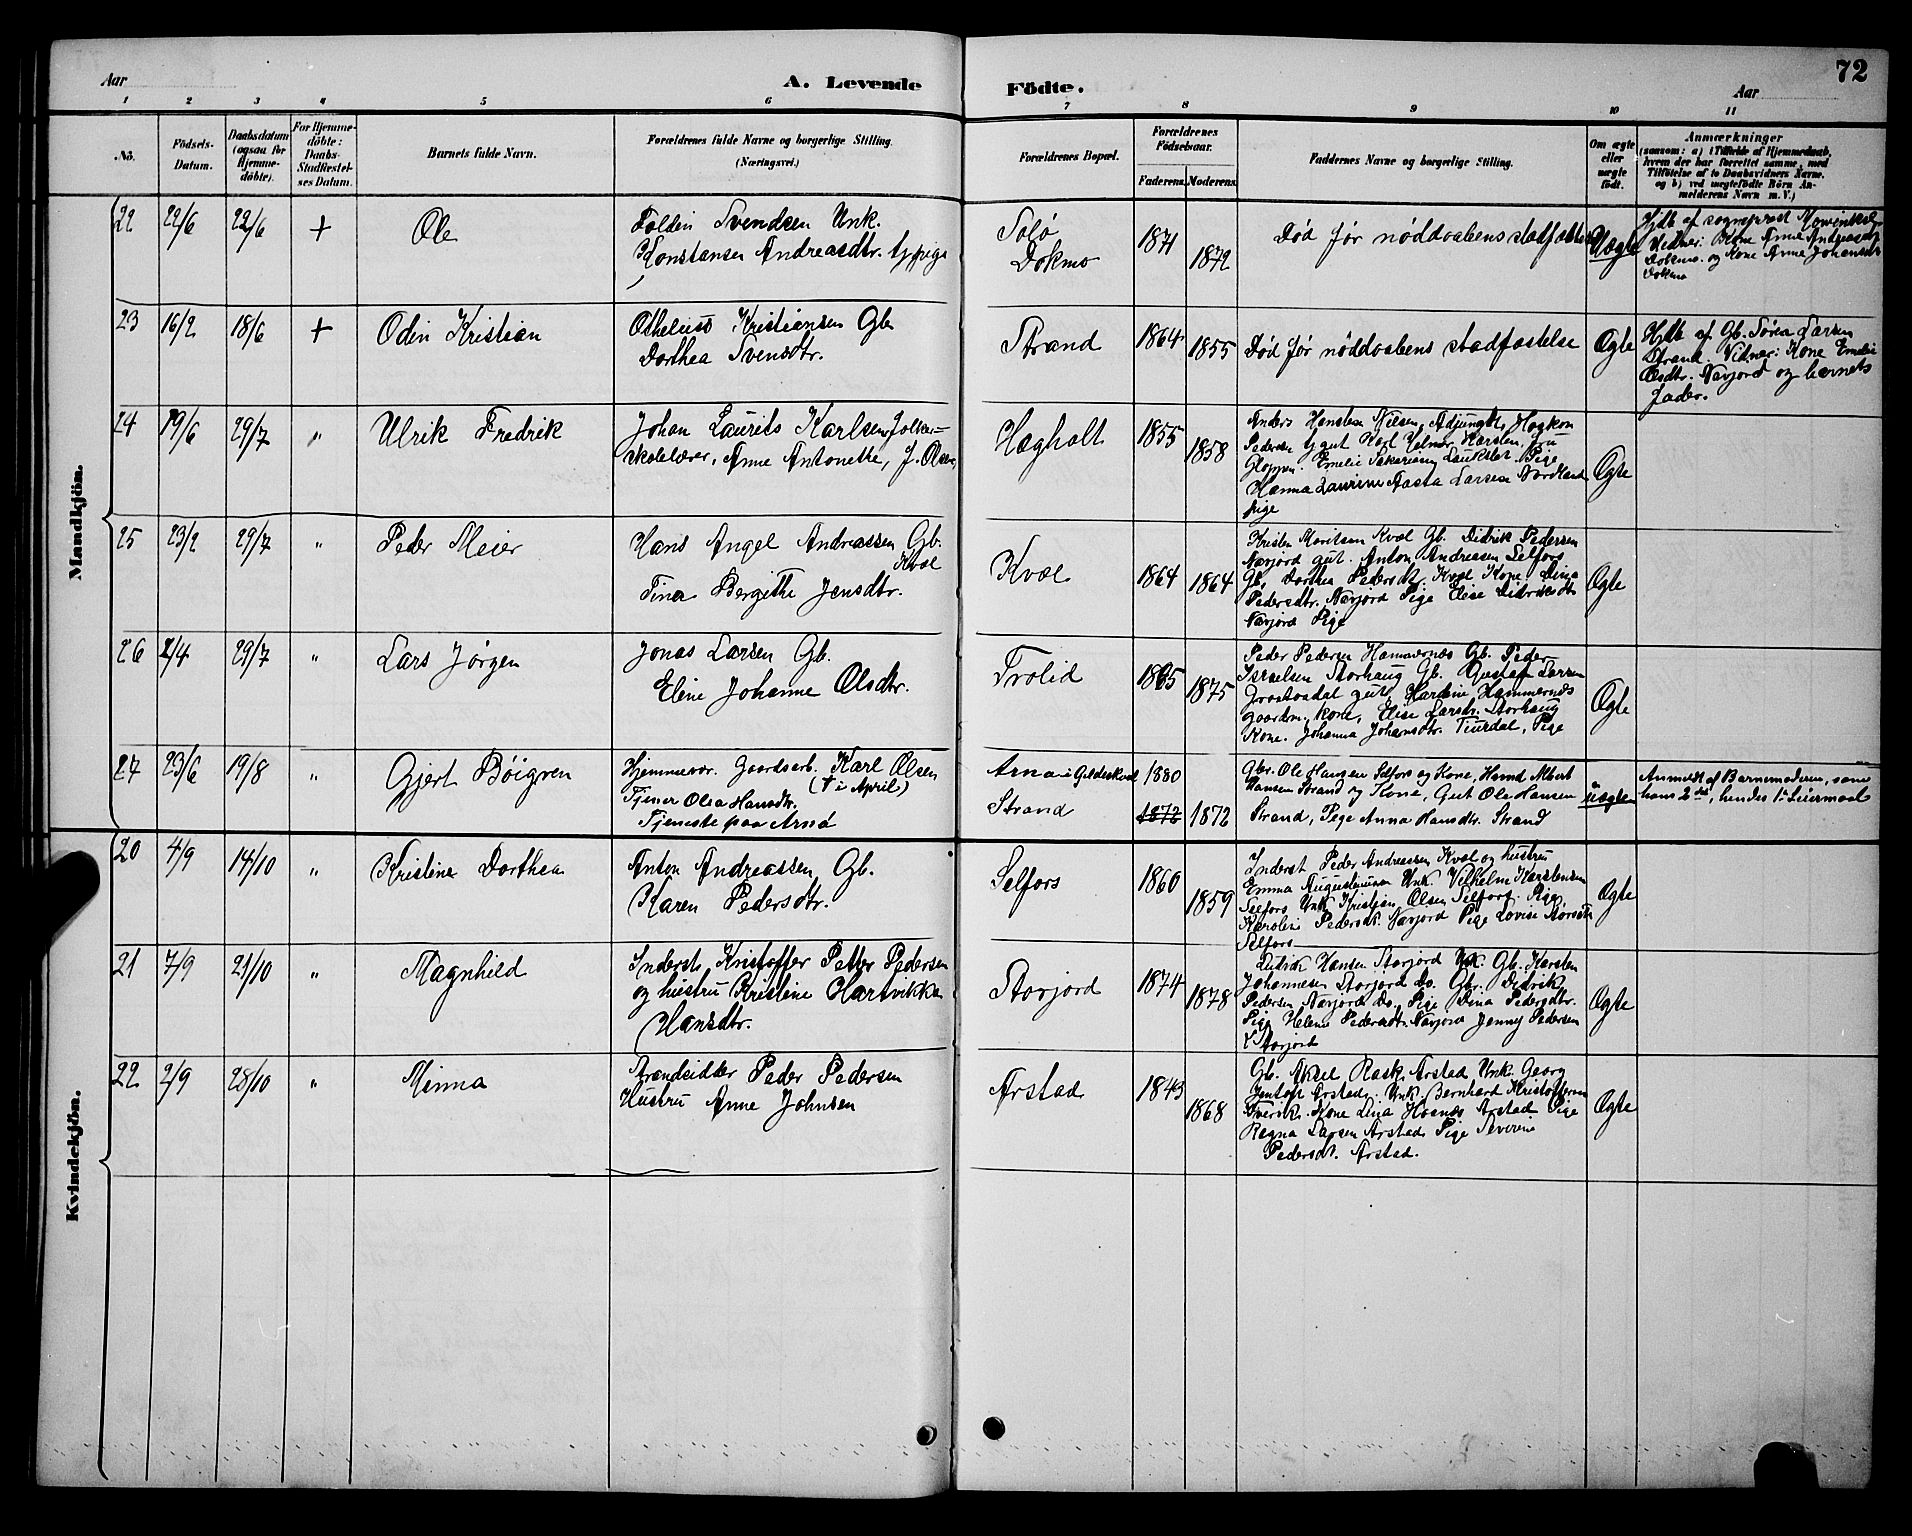 72
Aar
A. Levende
Födte.
Aar
1 2 3 4 5 6 7 8 9 10 11
No.
Födsels-
Datum.
Daabsdatum
(ogsaa for
Hjemme-
döbte).
For Hjemme-
döbte:
Daabs-
Stadfæstel-
ses Datum.
Barnets fulde Navn.
Forældrenes fulde Navne og borgerlige Stilling.
(Næringsvei.)
Forældrenes Bopæl.
Forældrenes
Födselsaar.
Faderens. Moderens.
Faddernes Navne og borgerlige Stilling.
Om ægte
eller
uægte
födt.
Anmærkninger
(saasom: a) i Tilfælde af Hjemmedaab,
hvem der har forrettet samme, med
Tilföielse af to Daabsvidners Navne,
og b) ved uægtefödte Börn An-
melderens Navn m. V.)
Mandkjön.
22 22/6 22/6 + Ole
Svendsen Unk.
Konstanse Andreasdtr.
Sølø
Dokmo
1871
1872
Død før nøddaabens stadfæstelse
Uægte
Hjdb af sogneprest Mowinkel
Vidner: Kone Anne Andreasen
Dokmo og Kone Anne
Dokmo
23 16/2 18/6 + Odin Kristian
Othelius Kristiansen Gb
Dorthea Svensdtr.
Strand
1864
1855
Død før nøddaabens stadfæstelse
Ægte
Hjdb af Gb. Søren Larsen
Strand. Vidner: Kone Emelie
Olsdtr. Nævjord og barnets
fader.
24 19/6 29/7 " Ulrik Fredrik
Johan Laurits Karlsen folke-
skolelærer, Anne Antonette, J. Olsen
Hægholt
1855
1858
Anders Nilsen, Haakon
Pedersen
Gloppen. Emelie Pige
Hanna Laurine Aasta Larsen Nordland
pige
Ægte
25 23/2 29/7 " Peder Meier
Hans Angel Andreassen Gb.
Kvæl
Tina Bergitte Jensdtr.
Kvæl
1864
1864
Kristen Moritsen Kvæl Gb. Didrik Pedersen
Nævjord gut. Anton Andreasen Selfors
Gb, Dorthea Pedersdtr. Kvæl Kone, Dina
Pedersdtr. Nævjord Pige Elise Didriksdtr
Nævjord Pige
Ægte
26 2/4 29/7 " Lars Jørgen
Jonas Larsen Gb.
Eline Johanne Olsdtr.
Trolid
1875
Peder Pedersen Hammernes Gb. Peder
Israelsen Storhaug Gb. Gustaf Larsen
gut, Hammernes
gaardm. kone, Elise Larsdtr. Storhaug
Kone. Johanna Johansdtr. Pige
Ægte
27 23/6 19/8 " Gjert Böigren
Hjemmevær. Gaardsarb. Karl Olsen
(† i April)
Tjener Olea Hansdtr.
Tjeneste paa Arnø
Arnø i Gildeskaal
Strand
1880
1872 1872
Gbr. Ole Hansen Selfors og Kone, Albert
Hansen Strand og Kone, Gut Ole Hansen
Strand, Pige Anna Hansdtr. Strand
uægte
Anmeldt af Barnemoderen, som
hans 2det, hendes 1ste Leiermaal
Kvindekjön.
20 4/9 14/10 " Kristine Dorthea
Anton Andreassen Gb.
Karen Pedersdtr.
Selfors
1860
1859
Inderst Peder Andreassen Kvæl og hustru
Emma Unk. Vilhelm Karstensen
Selfors Unk Kristian Olsen Selfors. Pige
Karoline Pedersdtr. Nævjord Pige Lovise
Selfors
Ægte
21 7/9 21/10 " Magnhild
Inderst Kristoffer Petter Pedersen
og hustru Kristine Hartvikke
Hansdtr.
Storjord
1874
1878
Didrik Hansen Storjord Unk. Gb. Karsten
Johannesen Storjord Do. Gbr. Didrik
Pedersen Nævjord Do, Pige Dina Pedersdtr.
Pige Helene Pedersdtr. Nævjord Jenny Pedersen
Storjord
Ægte
22 2/9 28/10 " Minna
Strandsidder Peder Pedersen
Hustru Anne Johnsen
Arstad
1843
1868
Gb. Aksel Rask, Arstad Unk. Georg
Jentoft Arstad, Unk. Bernhard Kristoffersen
Kone Lina Arstad Pige
Ragna Larsen Arstad, Pige Severine
Pedersdtr. Arstad.
Ægte